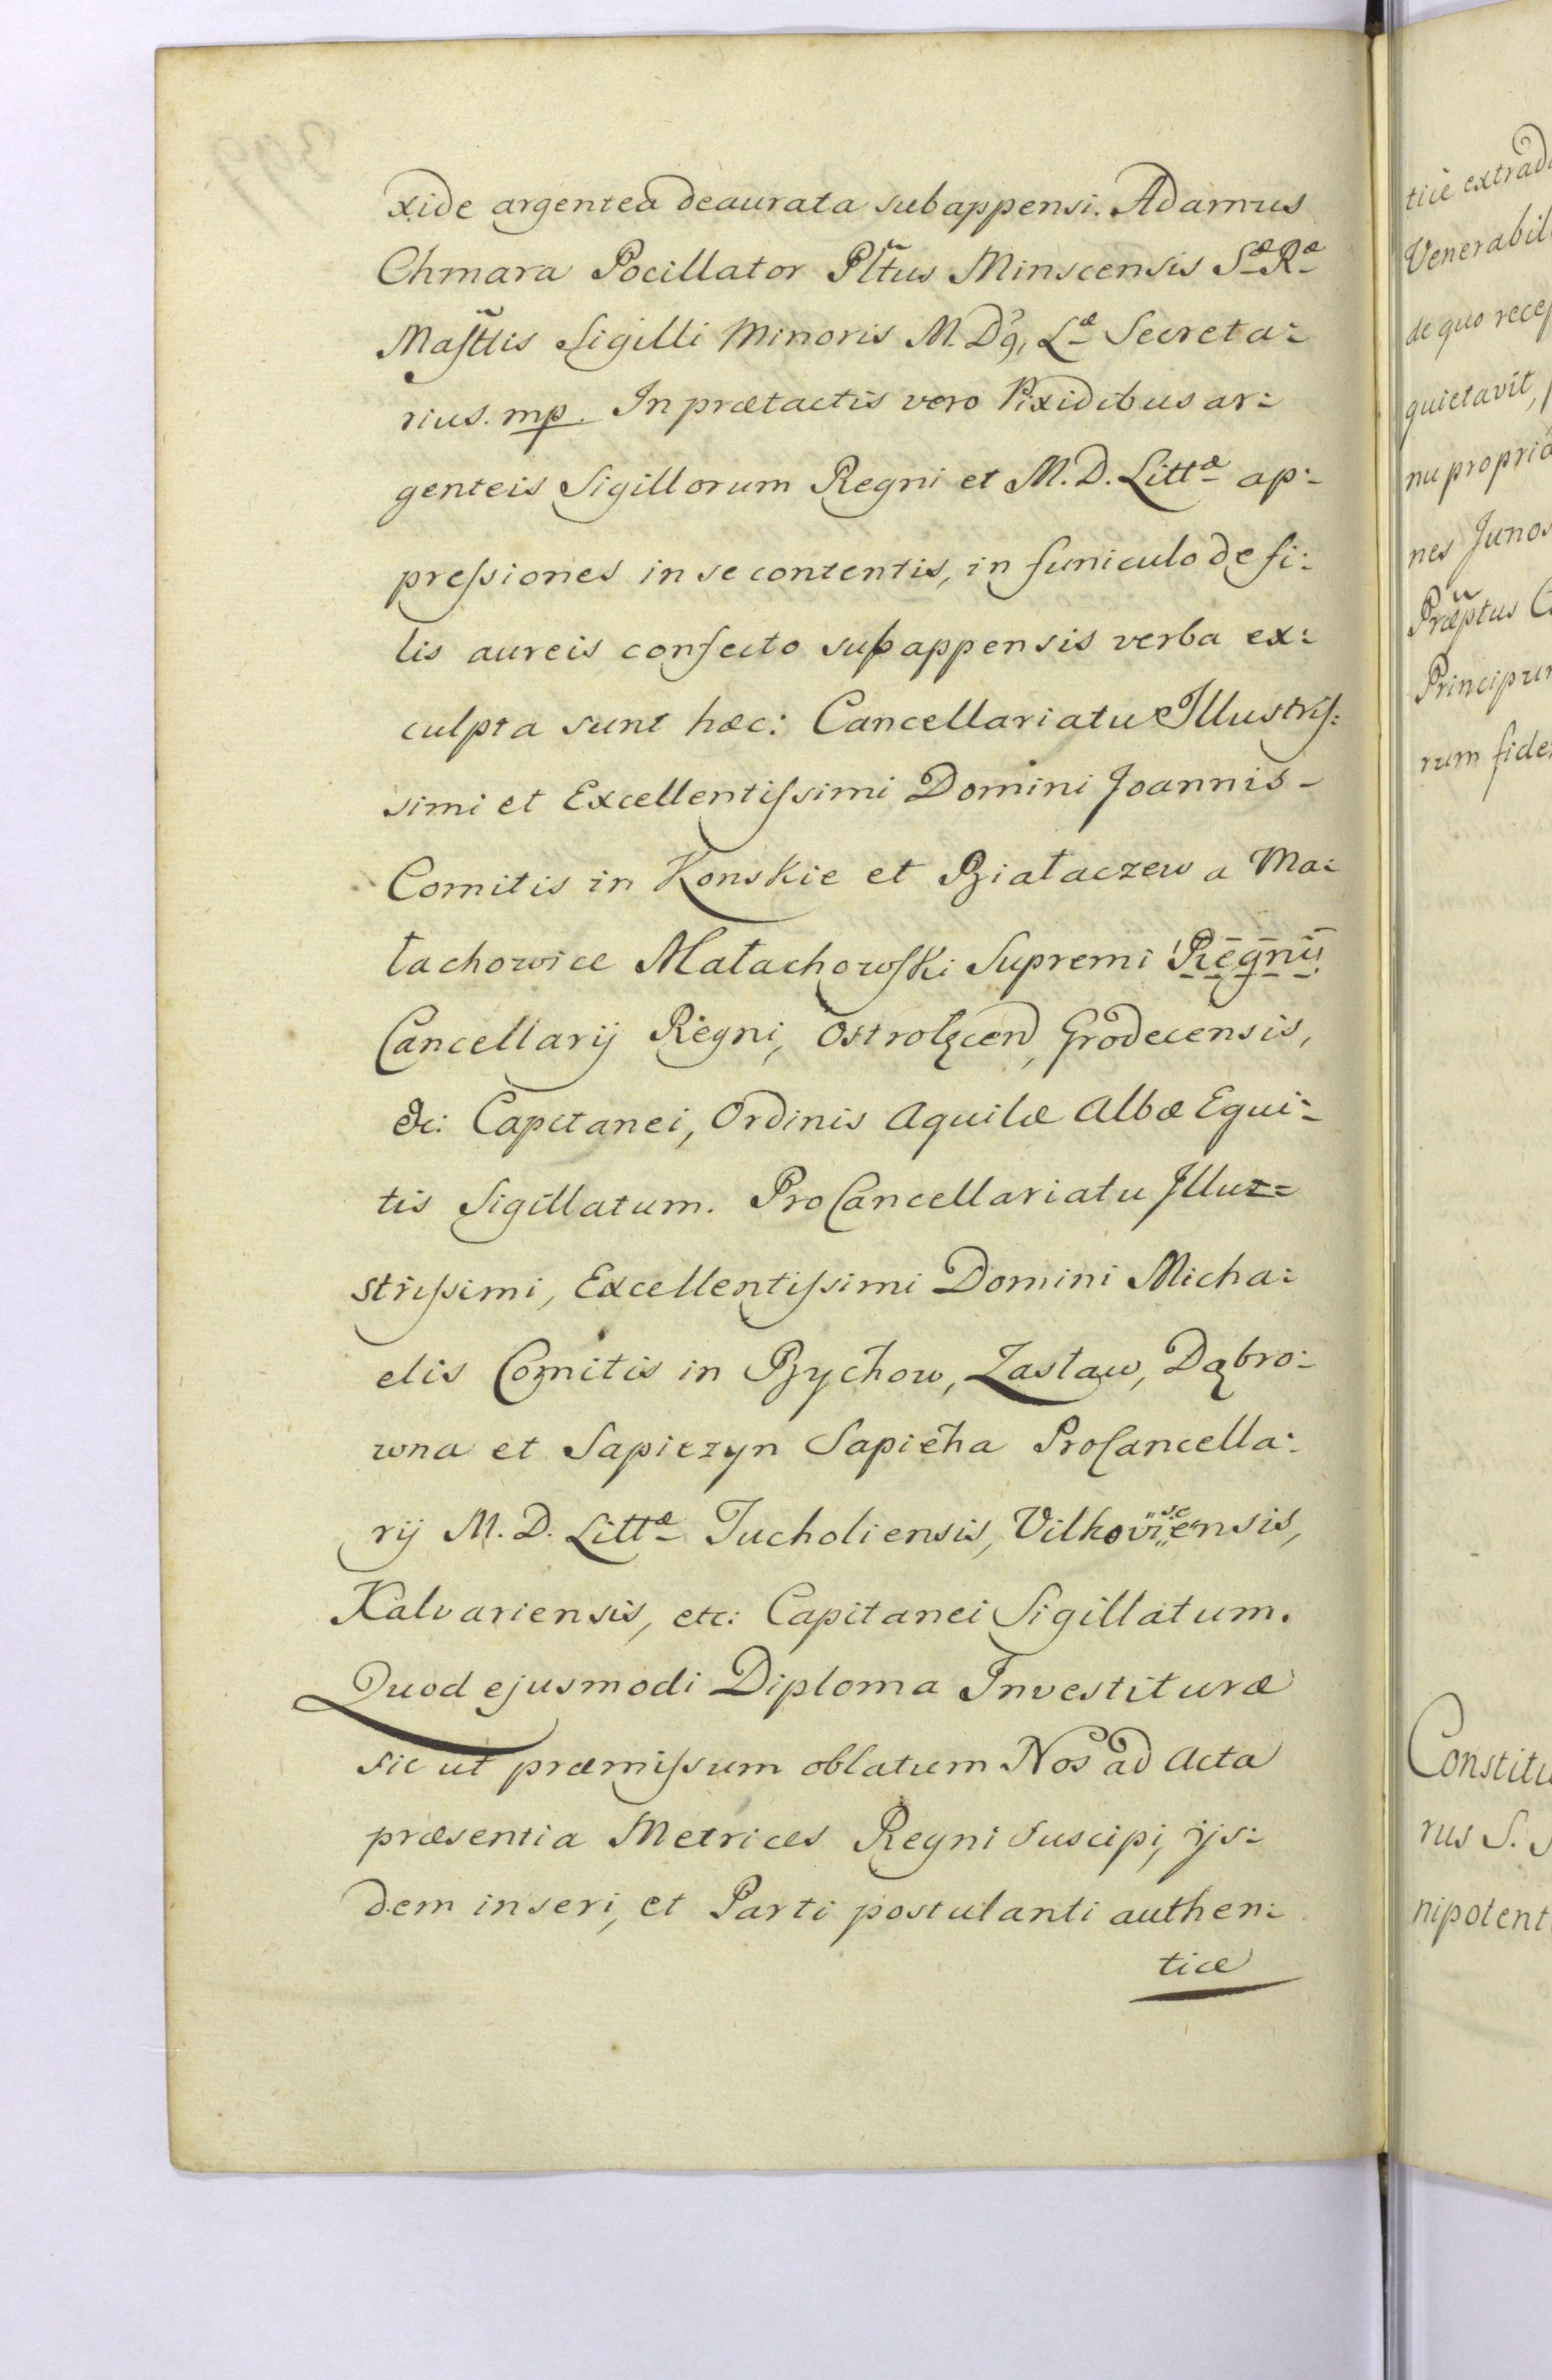 xide argentea deaurata subappensi. Adamus
Chmara Pocillator Pltus Minscensis Sæ Ræ
Maſttis Sigilli Minoris M. D. Læ Secreta:
rius. mp. In prætactis vero Pixidibus ar:
genteis Sigillorum Regni et M. D. Littæ ap:
preſsiones in se contentis, in funiculo de fi:
lis aureis confecto subappensis verba ex:
culpta sunt hæc: Cancellariatu Illustriſ:
simi et Excellentiſsimi Domini Joannis
Comitis in Konskie et Białaczew a Ma:
łachowice Małachowſki Supremi Regni
Cancellarij Regni, Ostrołęcen, Grodecensis,
&c: Capitanei, Ordinis Aquilæ Albæ Equi:
tis Sigillatum. ProCancellariatu Illus:
striſsimi, Excellentiſsimi Domini Micha:
elis Comitis in Bychow, Zasław, Dąbro:
wna et Sapiezyn Sapieha ProCancella:
rij M. D. Littæ Tucholiensis, Vilkoviscensis,
Kalvariensis, etc: Capitanei Sigillatum.
Quod ejusmodi Diploma Investituræ
sic ut præmiſsum oblatum Nos ad Acta
præsentia Metrices Regni suscipi, ijs:
dem inseri, et Parti postulanti authen:
tice
399
tice extrad
Venerabil
de quo recep
quietavit,
nu propriâ
nes Junos
Præptus C
Principum
rum fide
Constitu
rus S. S
nipotent